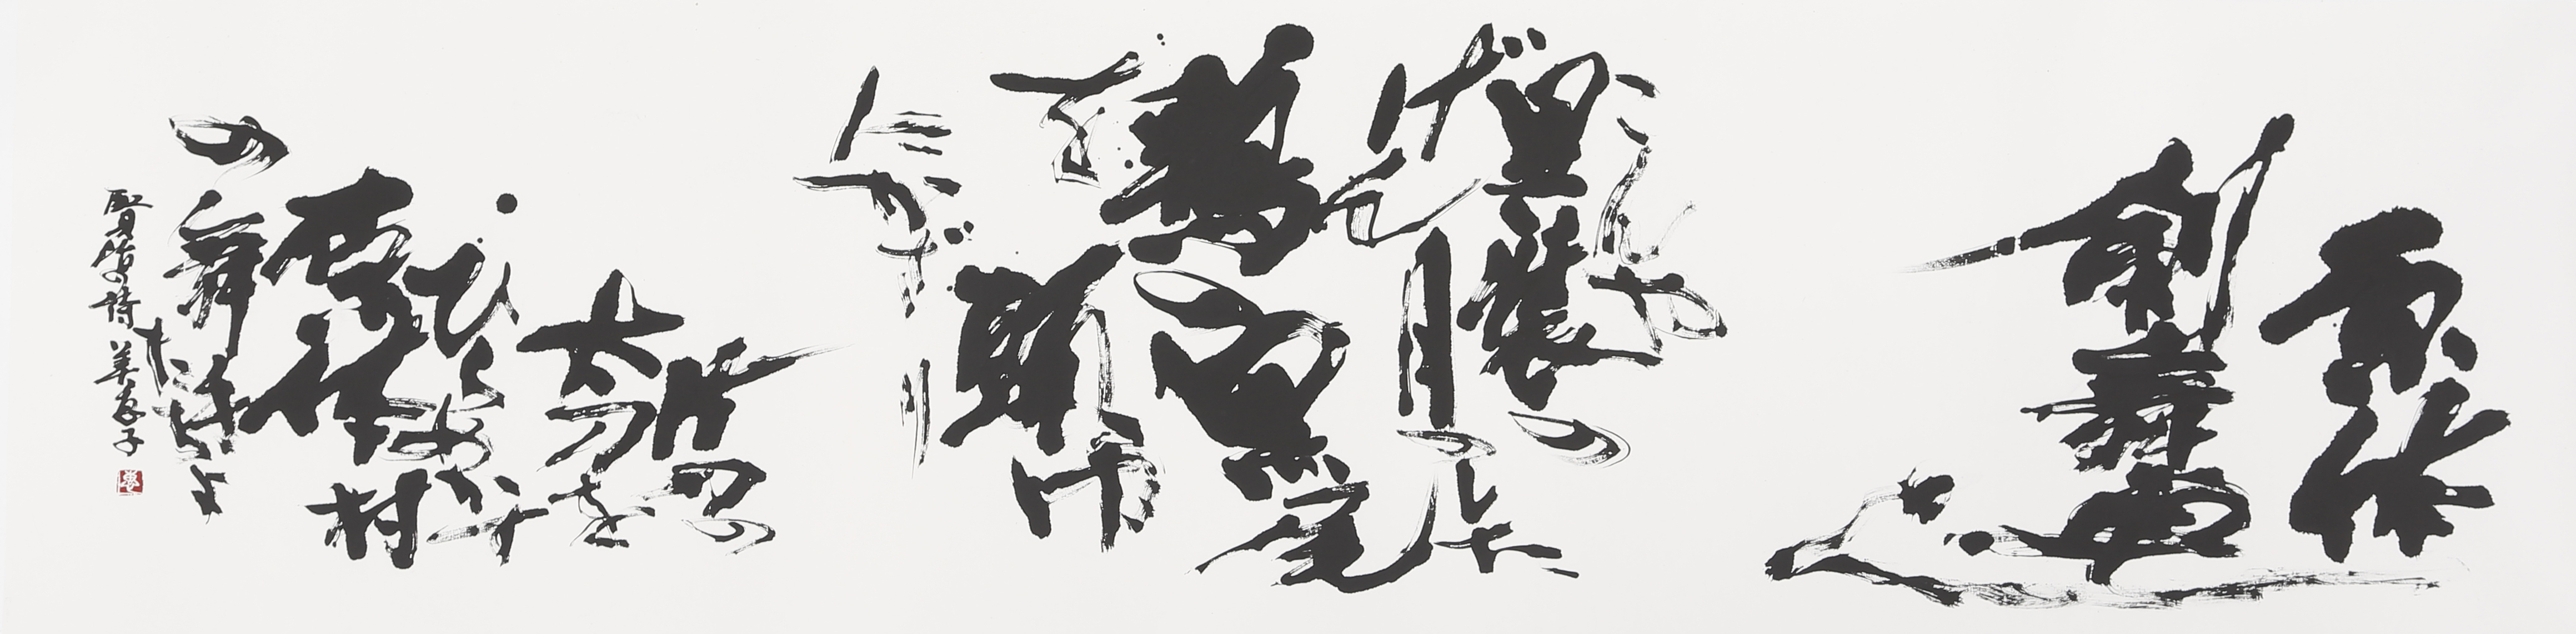 原体
剣舞連
こんや
異装の
げん月の
した
鶏の黒尾
を頭巾
にかざり
片刃の
太刀を
ひらめかす
原体村
の舞手たちよ
賢治の詩